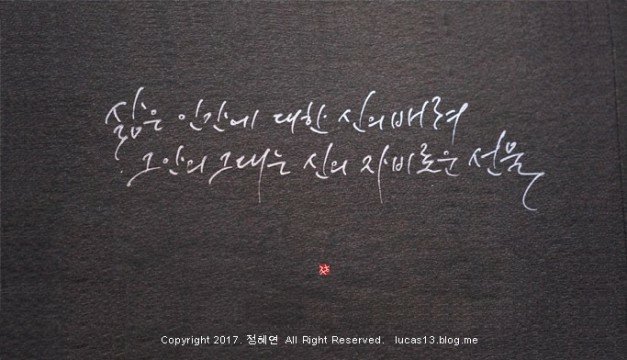 삶은 인간에 대한 신의 배려
그 안의 그대는 신의 자비로운 선물
Copyright 2017. 정혜연 All Right Reserved. lucas13.blog.me